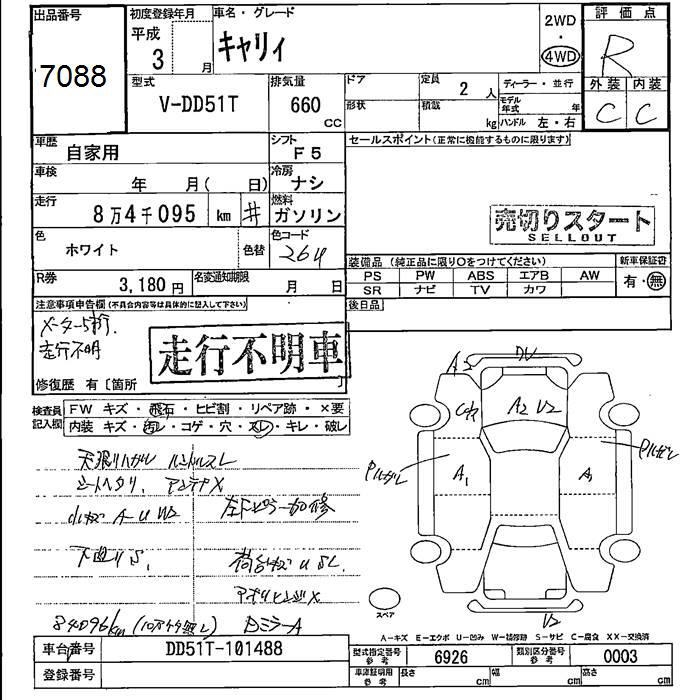 出品番号
7088
初度登録年月
平成
3
月
車名・グレード
キャリィ
2WD
・
4WD
評価点
R
外装 内装
C C
型式
V-DD51T
排気量
660
cc
ドア
形状
定員
2 人
積載
kg
ディーラー・並行
モデル
年式 年
ハンドル 左・右
車歴
自家用
シフト
F5
車検
年 月( 日)
冷房
ナシ
走行
8万4千095 km #
燃料
ガソリン
色
ホワイト
色替
色コード
26U
R券
3,180 円
名変通知期限
月 日
セールスポイント(正常に機能するものに限ります)
売切りスタート
SELLOUT
装備品(純正品に限り○をつけてください)
新車保証書
PS PW ABS エアB AW
SR ナビ TV カワ
有・無
後日品
注意事項申告欄(不具合内容等は具体的に記入して下さい)
メーター5桁.
走行不明
走行不明車
修復歴 有〔箇所 〕
検査員
記入欄
FW キズ・飛石・ヒビ割・リペア跡・×要
内装 キズ・汚レ・コゲ・穴・スレ・キレ・破レ
天張りハガレ ハンドルスレ
シートヘタリ. アンテナX
A-U W2
下廻りS.
荷台 U S.
84096km
DミラーA
A2
DU
A2 U2
A1
A1
U2
スペア
A－キズ E－エクボ U－凹み W－補修跡 S－サビ C－腐食 XX－交換済
車台番号
DD51T-101488
登録番号
型式指定番号
参考
6926
類別区分番号
参考
0003
車庫証明用
参考
長さ cm 幅 cm 高さ cm